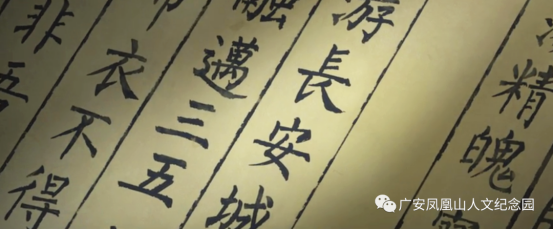 精魄
游長安城
融邁三五
衣不得
非吾
广安凤凰山人文纪念园